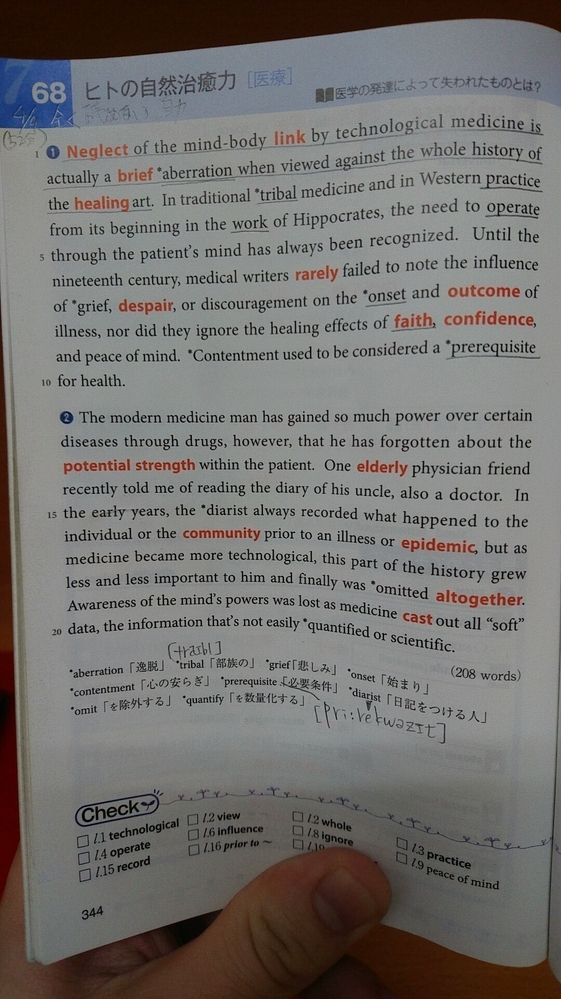 68 ヒトの自然治癒力 [医療]
医学の発達によって失われたものとは?
1 ❶ Neglect of the mind-body link by technological medicine is
actually a brief *aberration when viewed against the whole history of
the healing art. In traditional *tribal medicine and in Western practice
from its beginning in the work of Hippocrates, the need to operate
5 through the patient's mind has always been recognized. Until the
nineteenth century, medical writers rarely failed to note the influence
of *grief, despair, or discouragement on the *onset and outcome of
illness, nor did they ignore the healing effects of faith, confidence,
and peace of mind. *Contentment used to be considered a *prerequisite
10 for health.
❷ The modern medicine man has gained so much power over certain
diseases through drugs, however, that he has forgotten about the
potential strength within the patient. One elderly physician friend
recently told me of reading the diary of his uncle, also a doctor. In
15 the early years, the *diarist always recorded what happened to the
individual or the community prior to an illness or epidemic, but as
medicine became more technological, this part of the history grew
less and less important to him and finally was *omitted altogether.
Awareness of the mind's powers was lost as medicine cast out all “soft”
20 data, the information that's not easily *quantified or scientific.
(208 words)
[traibl]
*aberration「逸脱」 *tribal「部族の」 *grief「悲しみ」 *onset「始まり」
*contentment「心の安らぎ」 *prerequisite「必要条件」 *diarist「日記をつける人」
*omit「を除外する」 *quantify「を数量化する」
[pri:rekwəzɪt]
Check
□ l.1 technological □ l.2 view □ l.2 whole □ l.3 practice
□ l.4 operate □ l.6 influence □ l.8 ignore □ l.9 peace of mind
□ l.15 record □ l.16 prior to ~
344